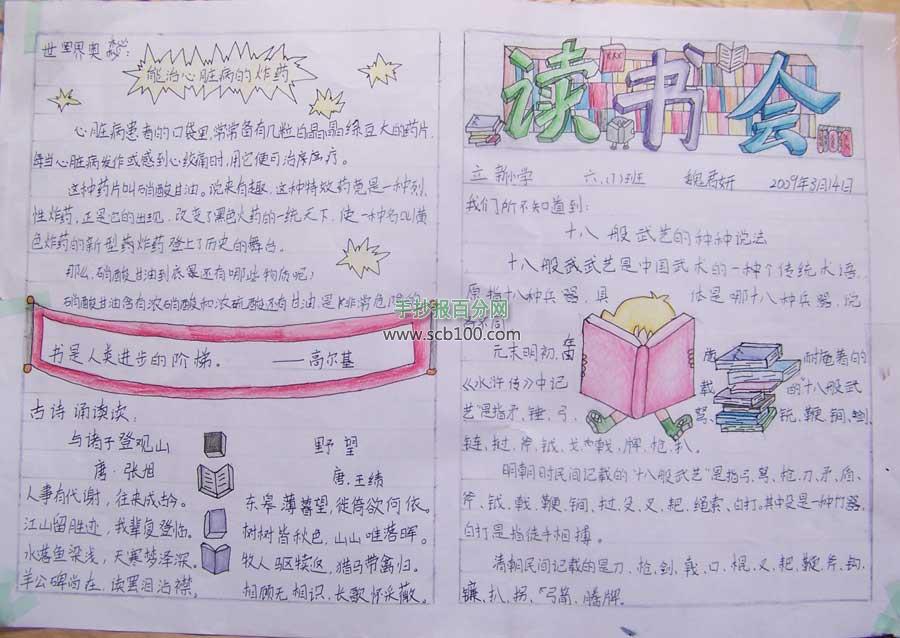 世界奥秘:
能治心脏病的炸药
心脏病患者的口袋里,常常备有几粒白晶晶绿豆大的药片,
每当心脏病发作或感到心绞痛时,用它便可治疗医疗。
这种药片叫硝酸甘油。说来有趣,这种特效药竟是一种烈
性炸药,正是它的出现,改变了黑色火药的一统天下,使一种名叫黄
色炸药的新型药炸药登上了历史的舞台。
那么,硝酸甘油到底是还有哪些物质呢?
硝酸甘油含有浓硝酸和浓硫酸还有甘油,是非常危险的
书是人类进步的阶梯。 ——高尔基
古诗诵读读:
与诸子登观山
唐·张旭
人事有代谢,往来成古今。
江山留胜迹,我辈复登临。
水落鱼梁浅,天寒梦泽深。
羊公碑尚在,读罢泪沾襟。
野望
唐·王绩
东皋薄暮望,徙倚欲何依。
树树皆秋色,山山唯落晖。
牧人驱犊返,猎马带禽归。
相顾无相识,长歌怀采薇。
读书会
立新小学 六、(1)班 2009年3月14日
我们所不知道到:
十八般武艺的种种说法
十八般武武艺是中国武术的一种个传统术语,
原指十八种兵器,具 体是哪十八种兵器,说
法不同
元末明初, 施耐庵著的
《水浒传》中记 载 的"十八般武
艺"是指矛、锤、弓、 弩、 铳、鞭、锏、剑、
链、挝、斧、钺、戈、戟、牌、枪、扒。
明朝时民间记载的"十八般武艺"是指弓、弩、枪、刀、矛、盾、
斧、钺、戟、鞭、锏、挝、殳、叉、耙、绳索、白打。其中殳是一种竹器,
白打是指徒手相搏。
清朝民间记载的是刀、枪、剑、戟、口、棍、叉、耙、鞭、斧、钩、
镰、扒、拐、弓箭、藤牌。
手抄报百分网
www.scb100.com